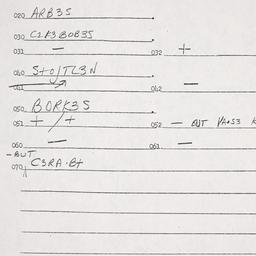 020 ARB35
030 C1K3BOB35
031 — 032 +
040 S+0/TL3N
041 042 —
050 BORK35
051 + / + 052 — BUT VA+S3 K
060 — 061 —
— BUT
070 C3RA·B+